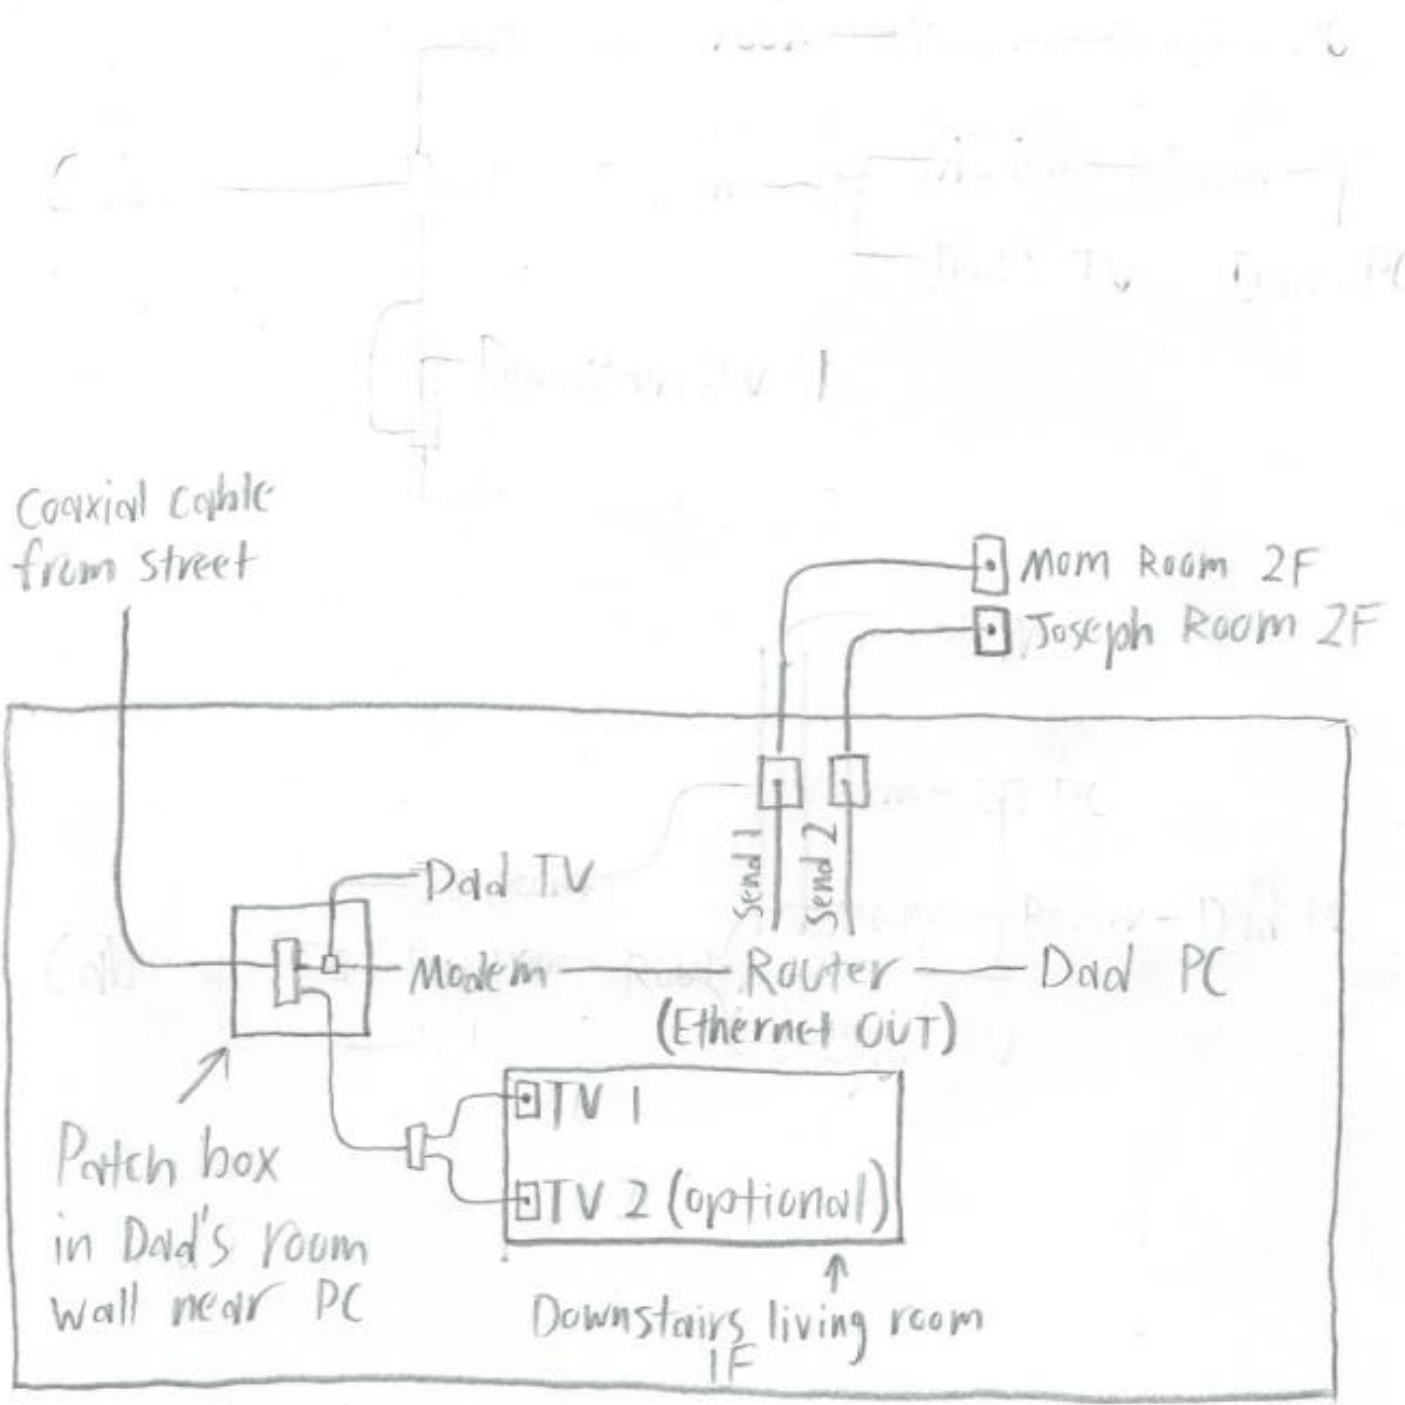 Coaxial cable
from street
Mom Room 2F
Joseph Room 2F
Send 1
Send 2
Dad TV
Modem
Router
(Ethernet OUT)
Dad PC
TV 1
TV 2 (optional)
Patch box
in Dad's room
wall near PC
Downstairs living room
1F